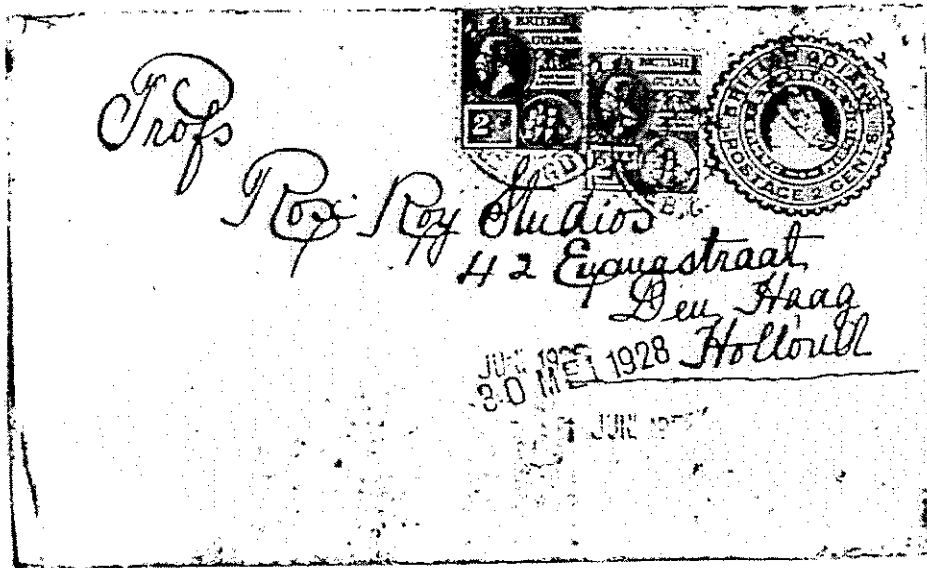 BRITISH
GUIANA
2¢
BRITISH
GUIANA
BRITISH GUIANA
POSTAGE 2 CENTS
B.G.
Profs
Rox Roy Studios
42 Emmastraat
Den Haag
Holland
30 MEI 1928
JUNI